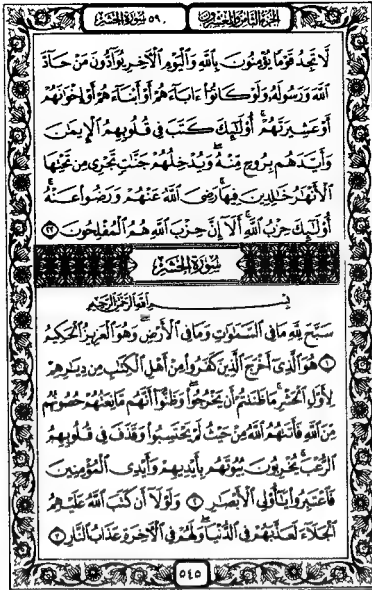 ٥٩ سورة الحشر الجزء الثامن والعشرون
لَّا تَجِدُ قَوْمًا يُؤْمِنُونَ بِاللَّهِ وَالْيَوْمِ الْآخِرِ يُوَادُّونَ مَنْ حَادَّ
اللَّهَ وَرَسُولَهُ وَلَوْ كَانُوا ءَابَاءَهُمْ أَوْ أَبْنَاءَهُمْ أَوْ إِخْوَانَهُمْ
أَوْ عَشِيرَتَهُمْ أُولَٰئِكَ كَتَبَ فِي قُلُوبِهِمُ الْإِيمَٰنَ
وَأَيَّدَهُم بِرُوحٍ مِّنْهُ وَيُدْخِلُهُمْ جَنَّٰتٍ تَجْرِي مِن تَحْتِهَا
الْأَنْهَٰرُ خَٰلِدِينَ فِيهَا رَضِيَ اللَّهُ عَنْهُمْ وَرَضُوا عَنْهُ
أُولَٰئِكَ حِزْبُ اللَّهِ أَلَا إِنَّ حِزْبَ اللَّهِ هُمُ الْمُفْلِحُونَ ٢٢
سُورَةُ الْحَشْرِ
بِسْمِ اللَّهِ الرَّحْمَٰنِ الرَّحِيمِ
سَبَّحَ لِلَّهِ مَا فِي السَّمَٰوَٰتِ وَمَا فِي الْأَرْضِ وَهُوَ الْعَزِيزُ الْحَكِيمُ
١ هُوَ الَّذِي أَخْرَجَ الَّذِينَ كَفَرُوا مِنْ أَهْلِ الْكِتَٰبِ مِن دِيَٰرِهِمْ
لِأَوَّلِ الْحَشْرِ مَا ظَنَنتُمْ أَن يَخْرُجُوا وَظَنُّوا أَنَّهُم مَّانِعَتُهُمْ حُصُونُهُم
مِّنَ اللَّهِ فَأَتَىٰهُمُ اللَّهُ مِنْ حَيْثُ لَمْ يَحْتَسِبُوا وَقَذَفَ فِي قُلُوبِهِمُ
الرُّعْبَ يُخْرِبُونَ بُيُوتَهُم بِأَيْدِيهِمْ وَأَيْدِي الْمُؤْمِنِينَ
فَاعْتَبِرُوا يَٰأُولِي الْأَبْصَٰرِ ٢ وَلَوْلَا أَن كَتَبَ اللَّهُ عَلَيْهِمُ
الْجَلَاءَ لَعَذَّبَهُمْ فِي الدُّنْيَا وَلَهُمْ فِي الْآخِرَةِ عَذَابُ النَّارِ ٣
٥٤٥